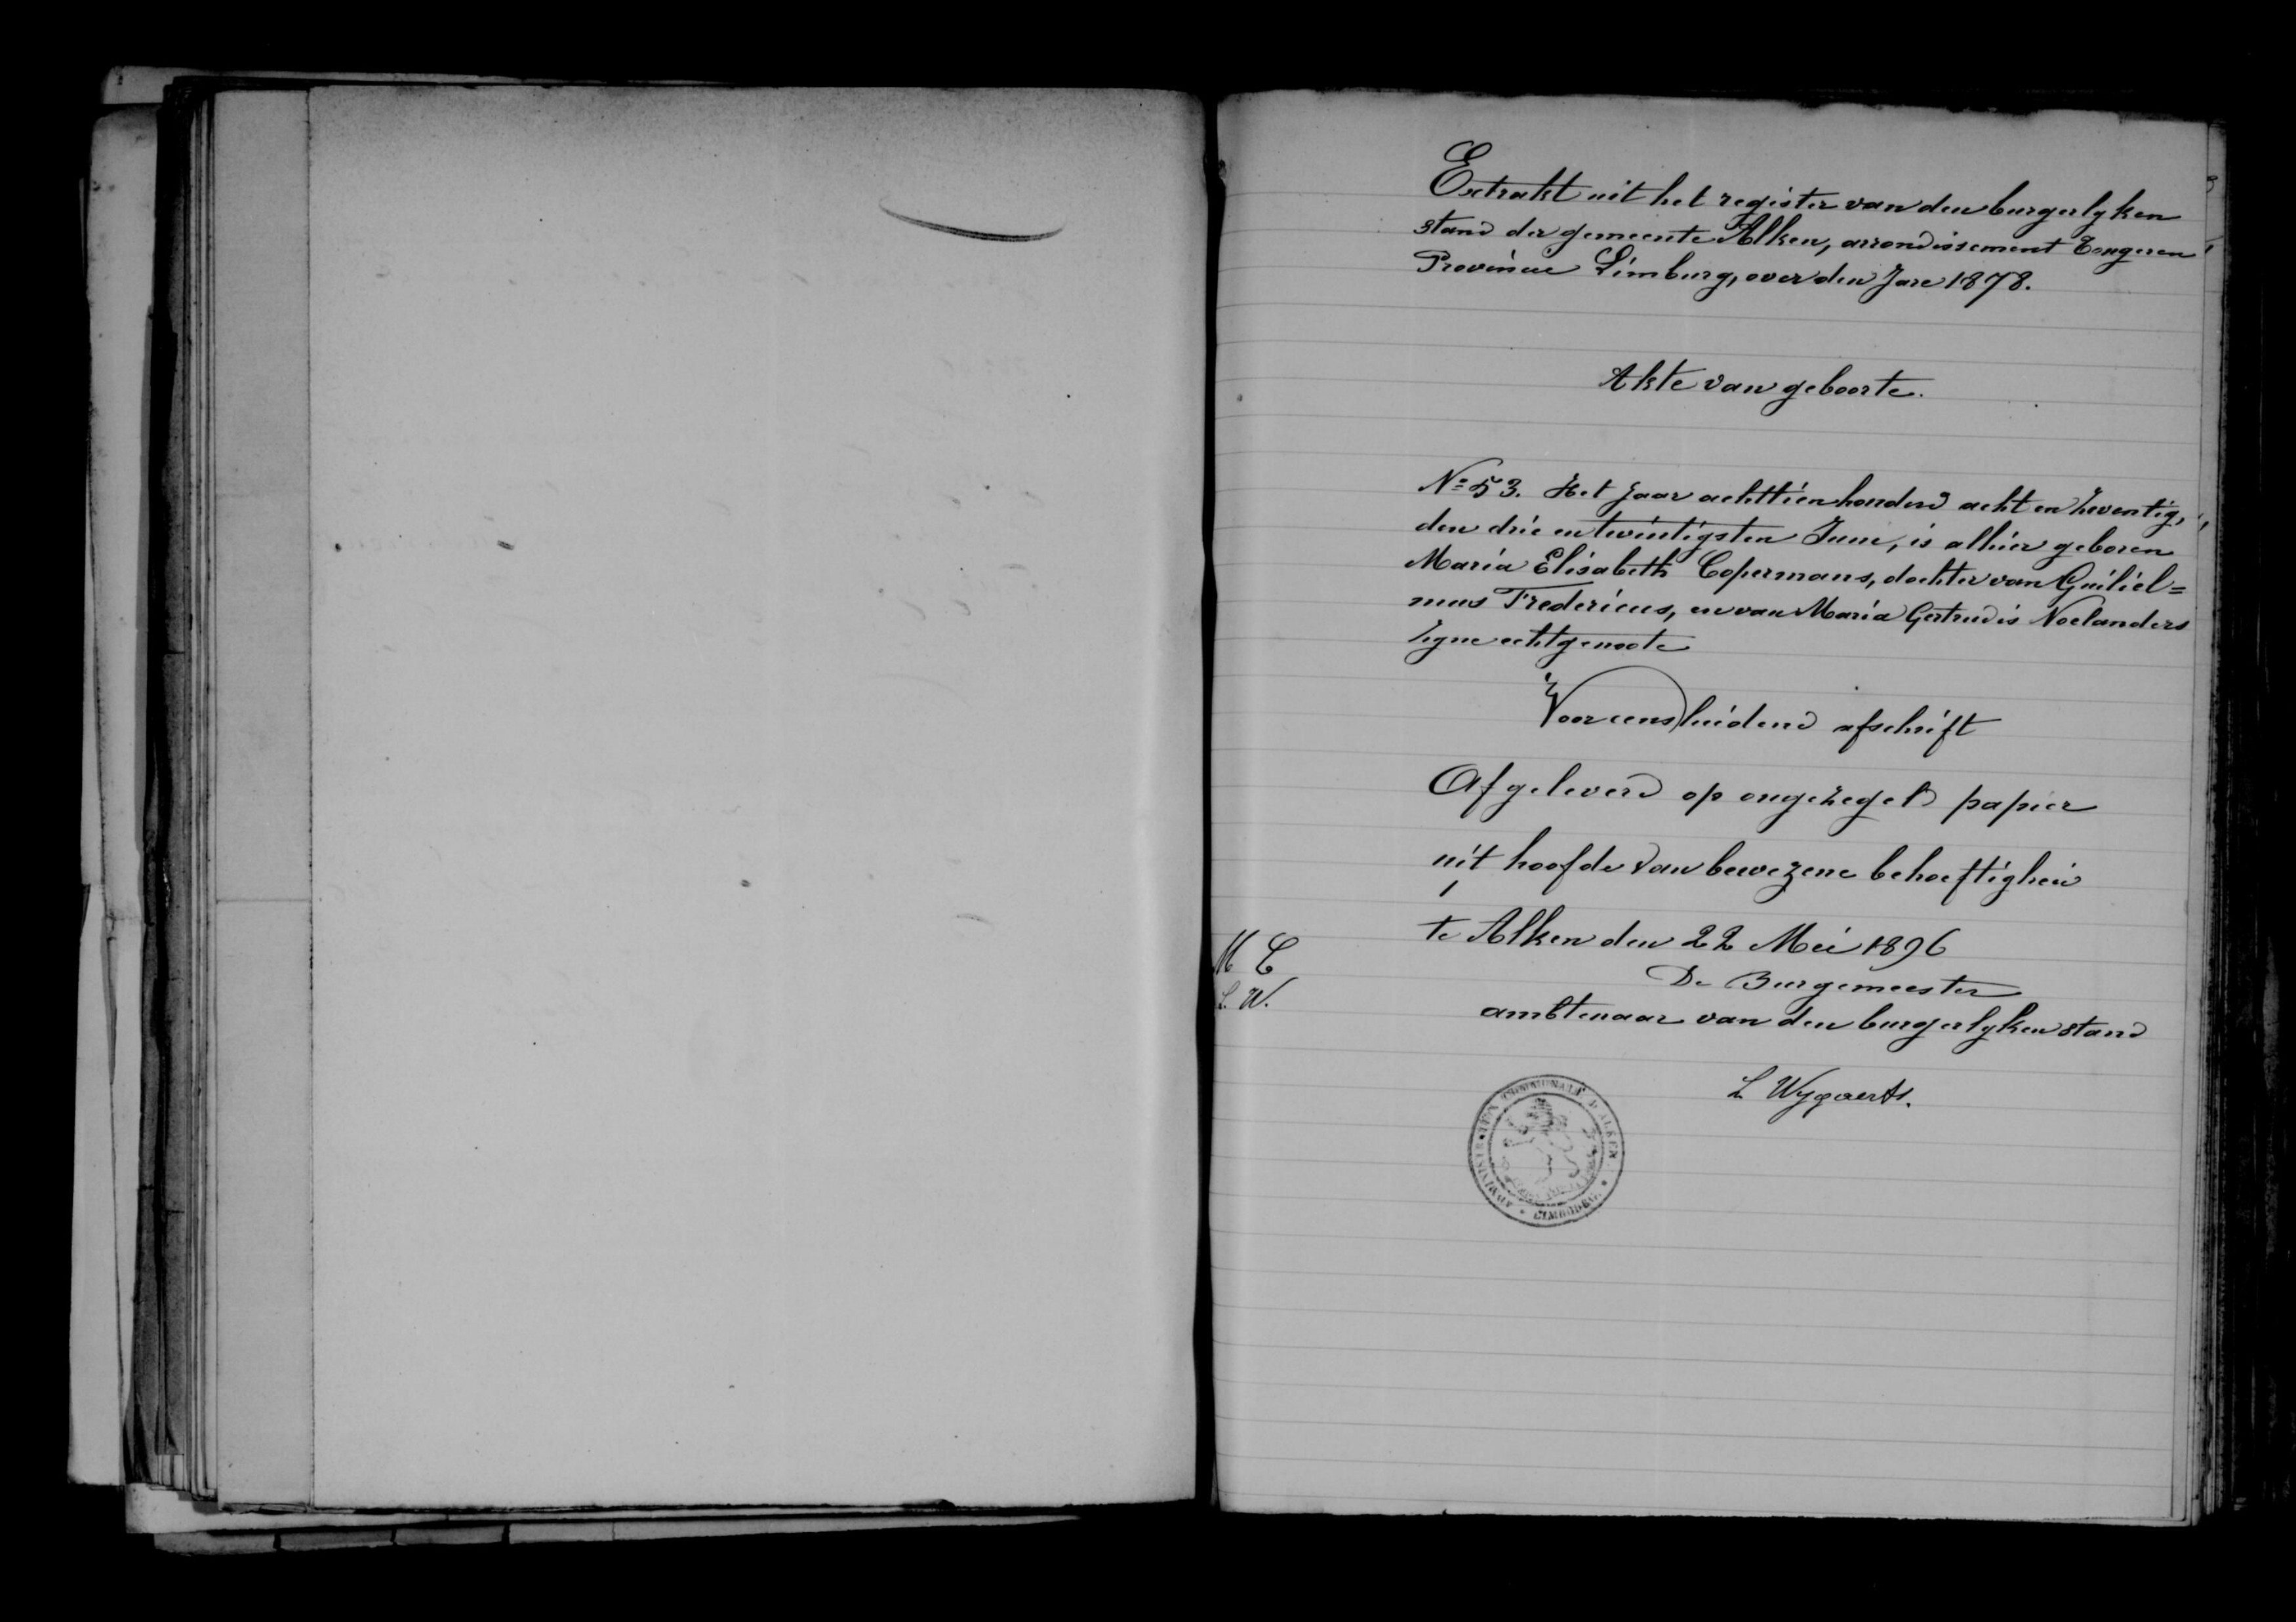 Extrakt uit het register van den burgerlyken
stand der gemeente Alken, arrondissement Tongeren
Provincie Limburg, over den Jare 1878.
Akte van geboorte.
Nº 53. Het Jaar achttien honderd acht en zeventig,
den drie en twintigsten Juni, is alhier geboren
Maria Elisabeth Copermans, dochter van Guiliel=
mus Fredericus, en van Maria Gertrudis Noelanders
zyne echtgenoote
Voor eensluidend afschrift
Afgeleverd op ongezegeld papier
uit hoofde van bewezene behoeftigheid
te Alken den 22 Mei 1896
M C
L. W.
De Burgemeester
ambtenaar van den burgerlyken stand
L Wygaerts.
ADMINISTRATION COMMUNALE D'ALKEN
* LIMBOURG. *